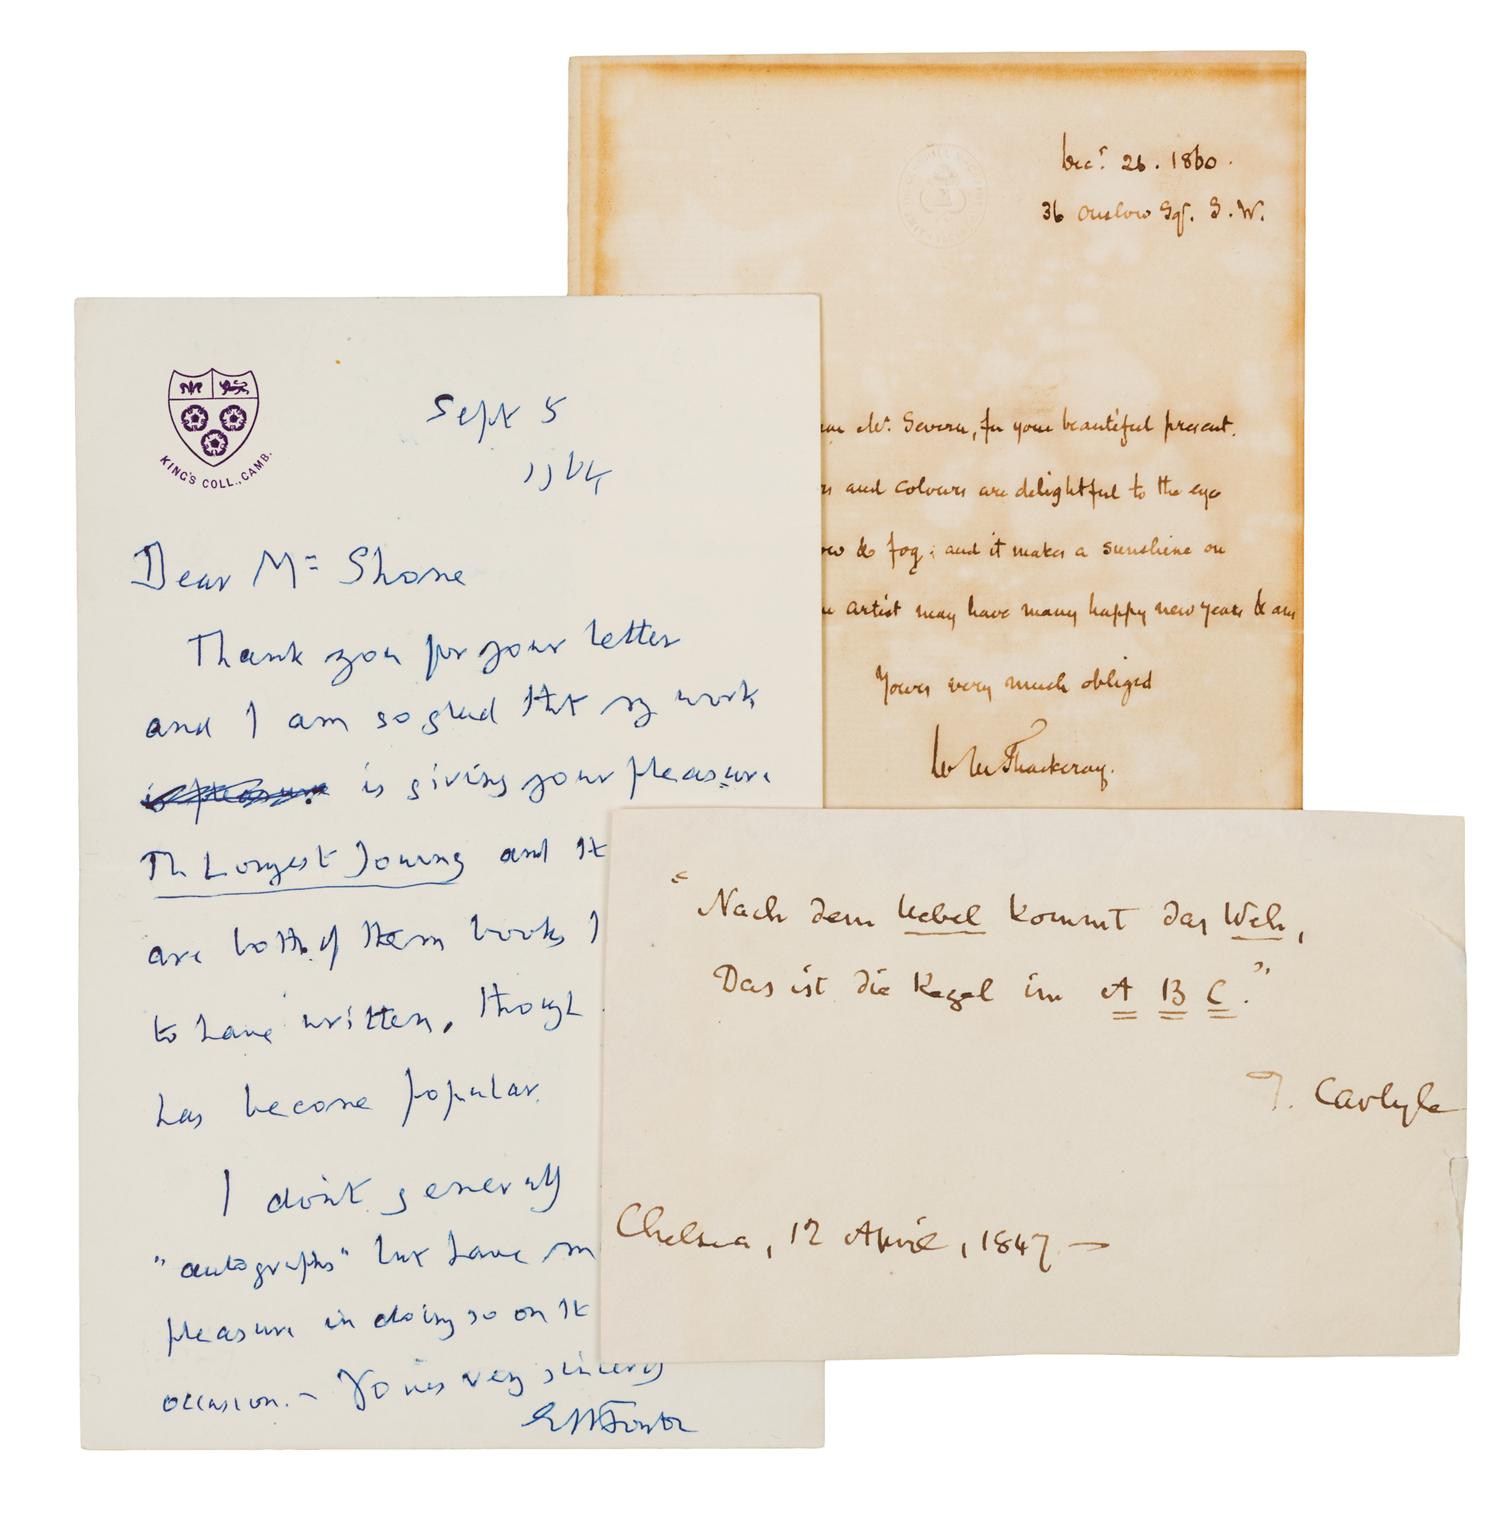 KING'S COLL., CAMB.
Sept 5
1964
Dear Mr Shone
Thank you for your letter
and I am so glad that my work
is pleasure is giving your pleasure
The Longest Journey and the
are both of them books I
to have written, though
has become popular.
I don't generally
"autographs" but have
pleasure in doing so on the
occasion. – Yours very sincerely
EMForster
Decr. 26. 1860.
36 Onslow Sqr. S.W.
Mr. Severn, for your beautiful present.
and colours are delightful to the eye
& fog; and it makes a sunshine on
artist may have many happy new years & am
Yours very much obliged
W M Thackeray.
"Nach dem Uebel kommt das Weh,
Das ist die Regel im A B C."
T. Carlyle
Chelsea, 12 April, 1847 —